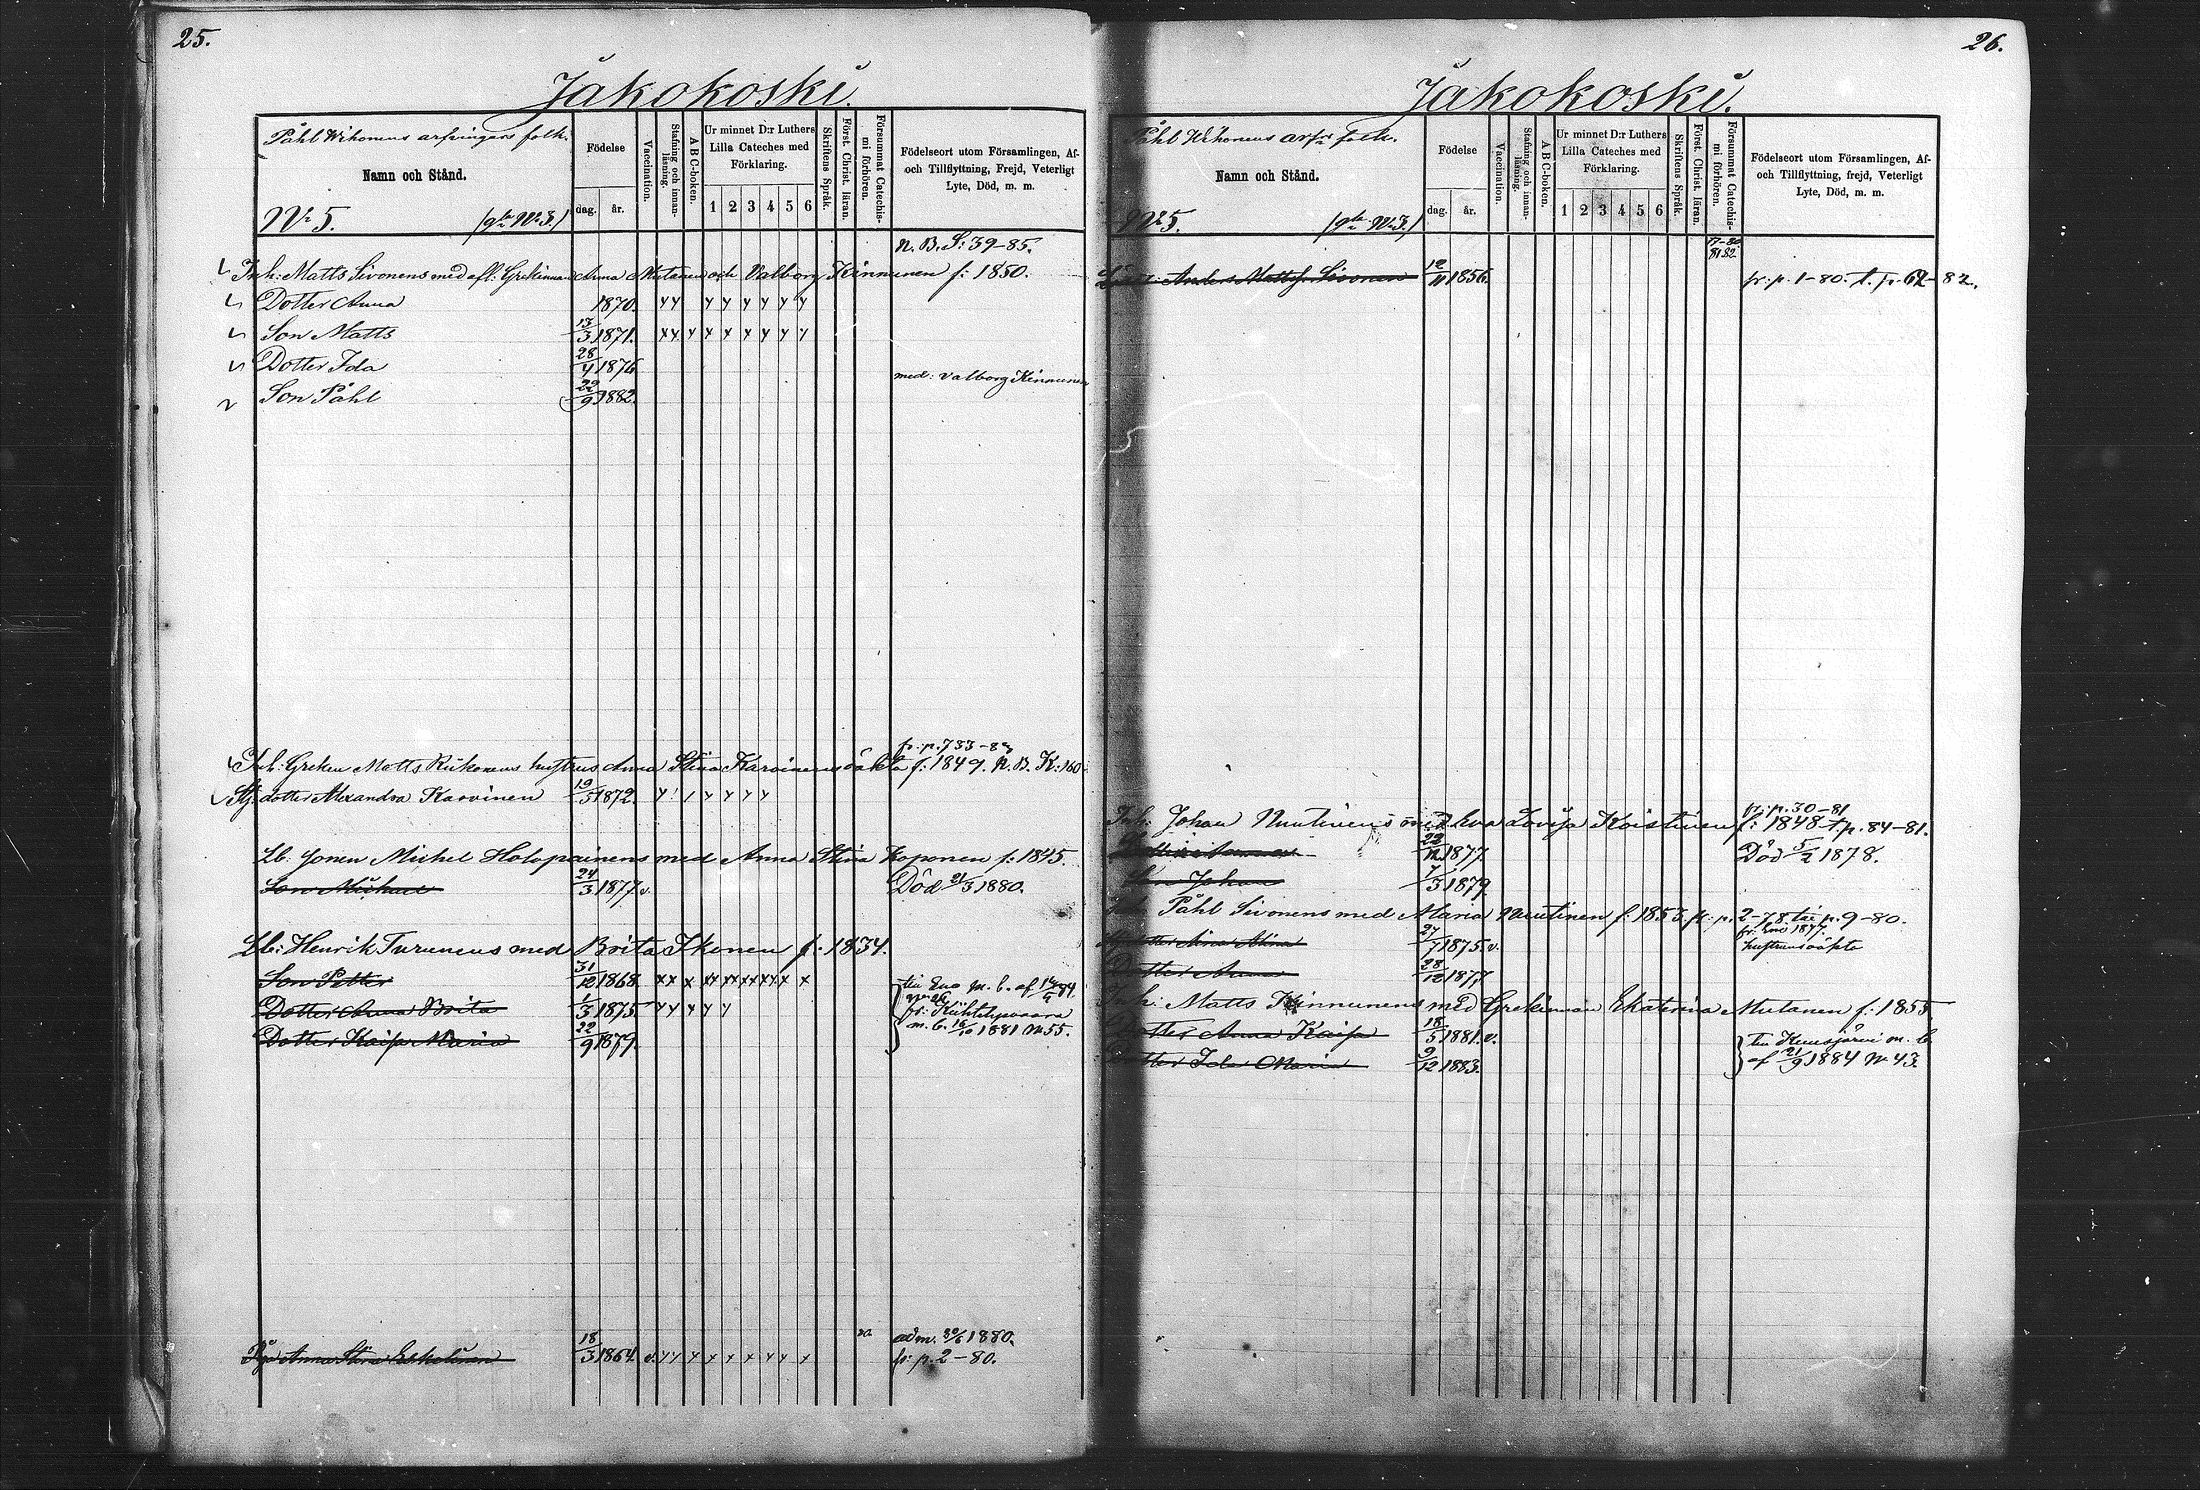 25.
Jakokoski.
Påhl Wihonens arfvingars folk.
Namn och Stånd.
No 5. (gla No 3.)
Födelse
dag. år.
Vaccination.
Stafning och innanläsning.
A B C-boken.
Ur minnet D:r Luthers
Lilla Cateches med
Förklaring.
1 2 3 4 5 6
Skriftens Språk.
Först. Christ. läran.
Försummat Catechismi förhören.
Födelseort utom Församlingen, Af-
och Tillflyttning, Frejd, Veterligt
Lyte, Död, m. m.
N. B. S: 39-85.
Inh: Matts Sivonens med afl: Grekinnan Anna Mutanen och Valborg Kinnunen f: 1850.
Dotter Anna 1870.
Son Matts 13/3 1871.
Dotter Ida 28/4 1876
med: Valborg Kinnunen
Son Påhl 22/9 1882.
fr: p. 733-83
Inh: Greken Matts Riikonens hustrus Anna Stina Karvinens oäkta f: 1849. N. B. K: 160
Stj: dotter Alexandra Karvinen 19/5 1872.
Lb: Jonen Michel Holopainens med Anna Stina Koponen f: 1845.
Son Michael 24/3 1877. v. Död 21/3 1880.
Lb: Henrik Turunens med Brita Ikonen f: 1834.
Son Petter 31/12 1868. till Eno m. b. af
Dotter Anna Brita 1/3 1875. fr: Kiihtelysvaara
Dotter Kaisa Maria 22/9 1879. m. b. 16/10 1881 No 55.
adm. 30/6 1880.
Pig Anna Stina Eskelinen 18/3 1864. v. fr: p. 2-80.
26.
Jakokoski.
Påhl Wihonens arfvrs folk.
Namn och Stånd.
No 5. (gla No 3.)
Födelse
dag. år.
Vaccination.
Stafning och innanläsning.
A B C-boken.
Ur minnet D:r Luthers
Lilla Cateches med
Förklaring.
1 2 3 4 5 6
Skriftens Språk.
Först. Christ. läran.
Försummat Catechismi förhören.
Födelseort utom Församlingen, Af-
och Tillflyttning, frejd, Veterligt
Lyte, Död, m. m.
Anders Mattss. Sivonen 1856. fr: p. 1-80. t. p. 62-82.
fr: p. 30-81
Inh: Johan Nuutinens med Eva Lovisa Koistinen f: 1848 t. p. 84-81.
22/12 1877. Död 5/2 1878.
Son Johan 7/3 1879
Inh: Påhl Sivonens med Maria Nuutinen f: 1853. fr: p. 2-78. till p. 9-80.
fr: Eno 1877.
Stina 27/7 1875. v. hustruns oäkta
Dotter Anna 28/12 1877
Inh: Matts Kinnunens med Grekinnan Ekaterina Mutanen f: 1855
Dotter Anna Kaisa 18/5 1881. v. till Kuusjärvi m. b.
Dotter Ida Maria 9/12 1883. af 21/9 1884 No 43.